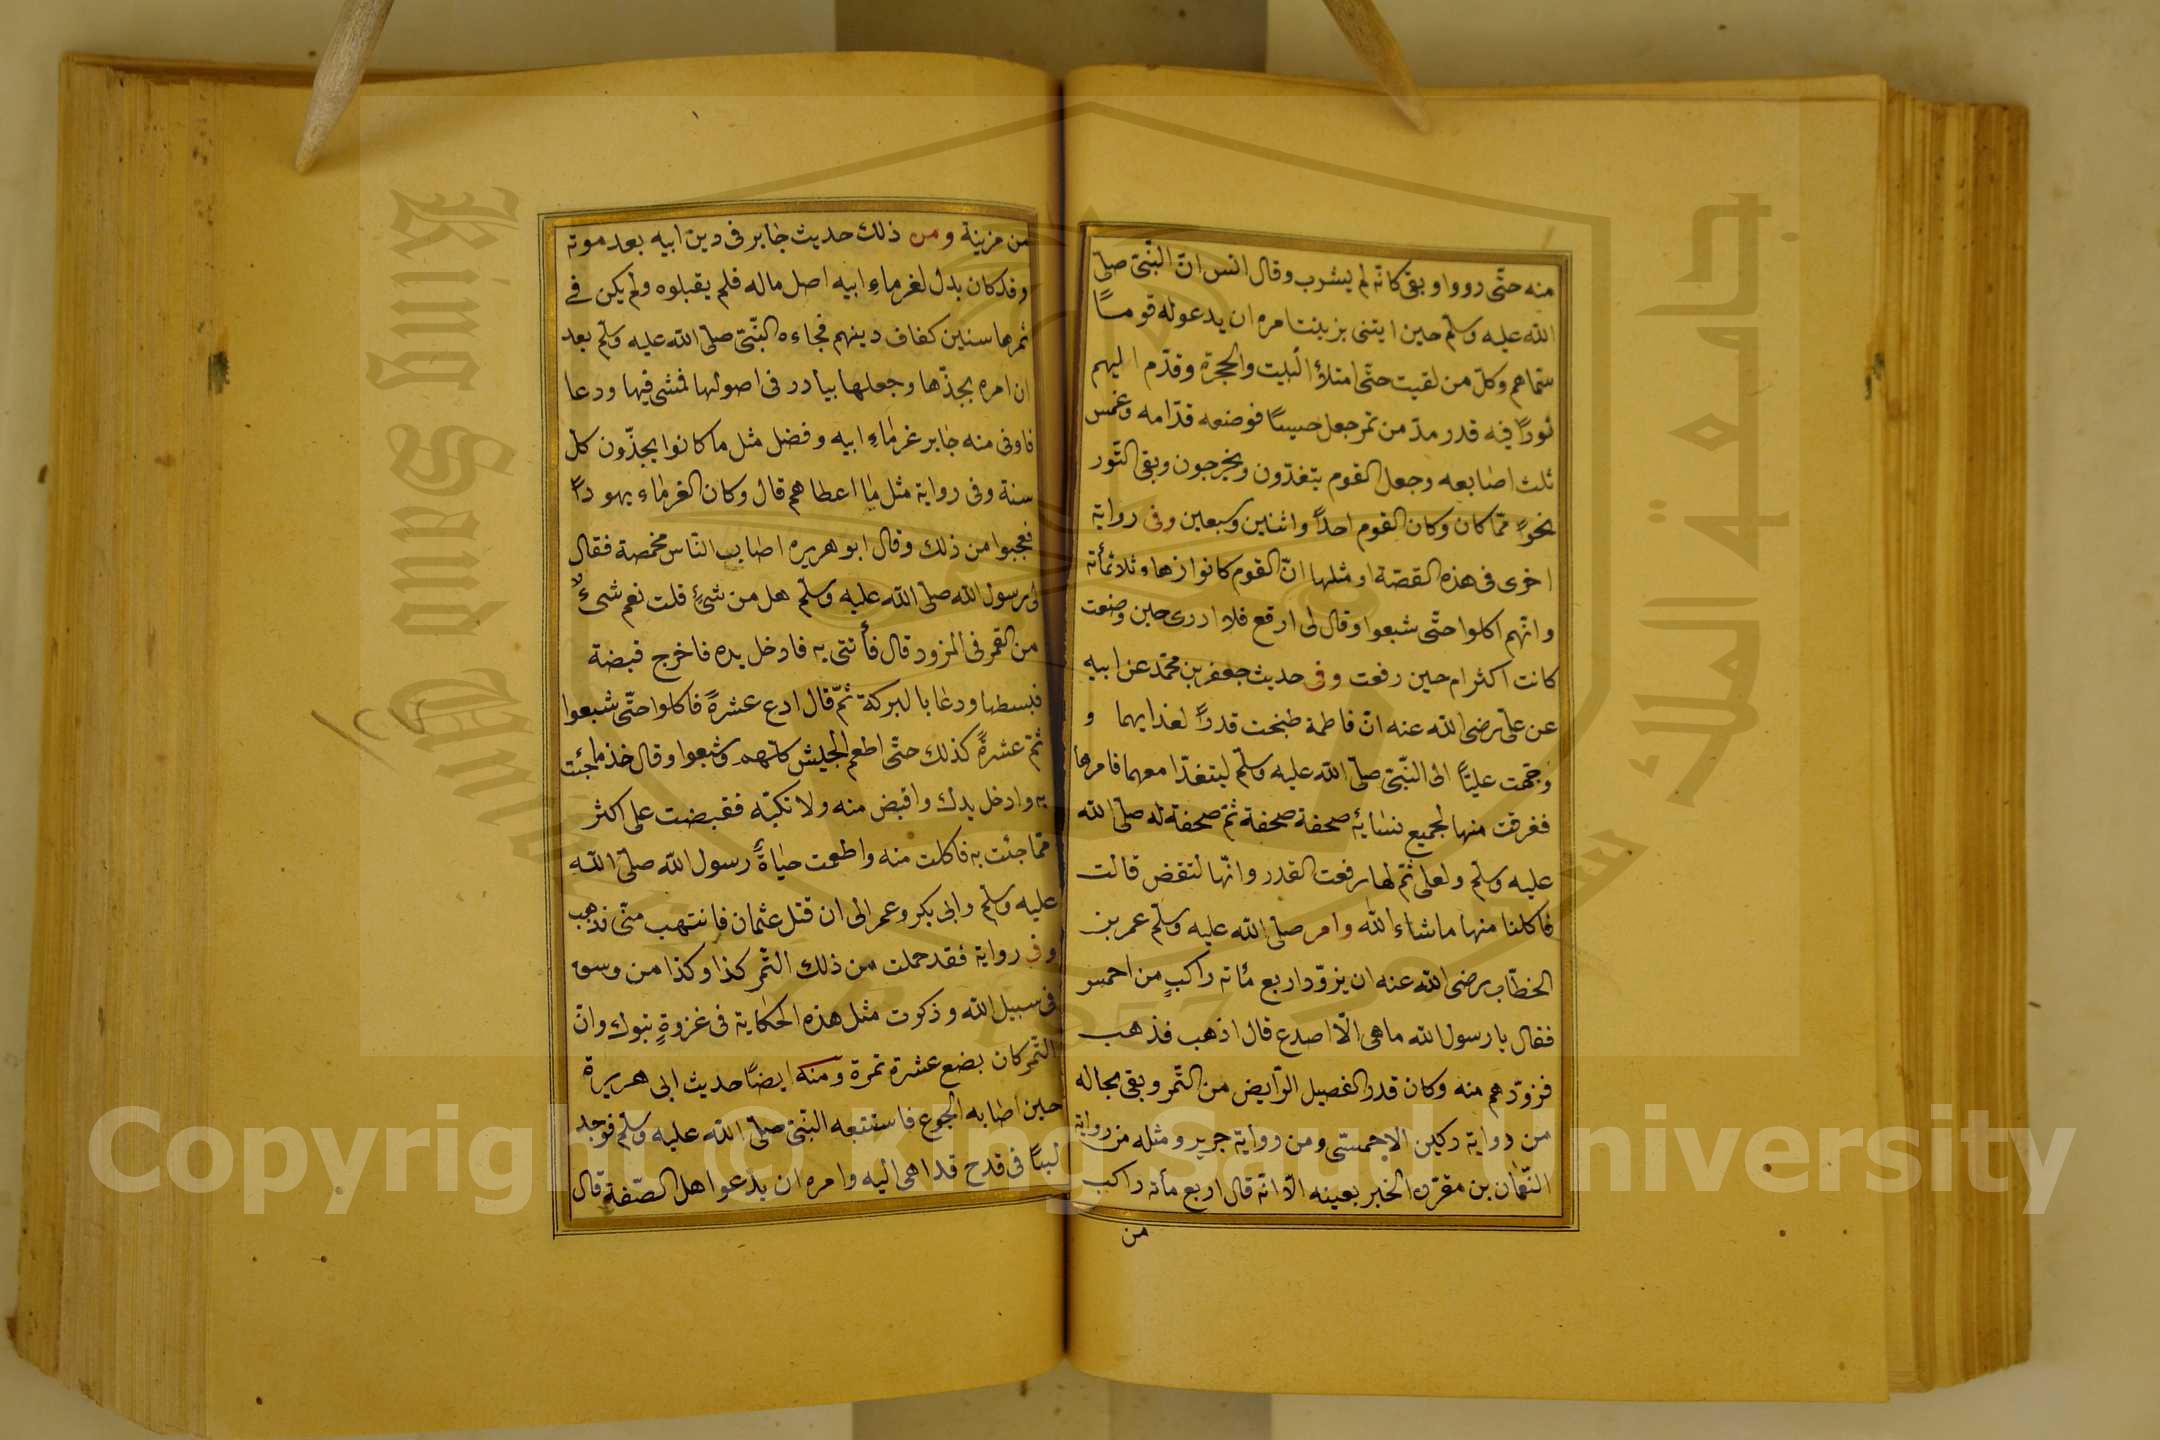 منه حتّى رووا وبقى كانّه لم يشرب وقال انس انّ النّبىّ صلّى
الله عليه وسلّم حين ابتنى بزينب امره ان يدعو له قوماً
سمّاهم وكلّ من لقيت حتّى امتلأ البيت والحجرة وقدّم اليهم
توراً فيه قدر مدّ من تمر جعل حيساً فوضعه قدّامه وغمس
ثلث اصابعه وجعل القوم يتغدّون ويخرجون وبقى التّور
نحواً ممّا كان وكان القوم احداً واثنين وسبعين وفى رواية
اخرى فى هذه القصّة او مثلها انّ القوم كانوا زهاء ثلاثمأئة
وانّهم اكلوا حتّى شبعوا وقال لى ارفع فلا ادرى حين وضعت
كانت اكثر ام حين رفعت وفى حديث جعفر بن محمّد عن ابيه
عن علىّ رضى الله عنه انّ فاطمة طبخت قدراً لغدايهما و
وجّهت عليّاً الى النّبىّ صلّى الله عليه وسلّم ليتغدّا معهما فامرها
فغرفت منها لجميع نسايه صحفة صحفة ثمّ صحفة له صلّى الله
عليه وسلّم ولعلى ثمّ لها رفعت القدر وانّها لتفض قالت
فاكلنا منها ماشاء الله وامر صلّى الله عليه وسلّم عمر بن
الخطّاب رضى الله عنه ان يزوّد اربع مائة راكبٍ من احمس
فقال يا رسول الله ماهى الّا اصدع قال اذهب فذهب
فزوّدهم منه وكان قدر الفصيل الرّابض من التّمر وبقى بحاله
من رواية دكين الاحمسّى ومن رواية جرير ومثله من رواية
النّعمان بن مقرّن الخبر بعينه الّا انّه قال اربع مأئة راكب
من
من مزينة ومن ذلك حديث جابر فى دين ابيه بعد موته
وقد كان بذل لغرماءِ ابيه اصل ماله فلم يقبلوه ولم يكن فى
ثمرها سنين كفاف دينهم فجاءه النّبىّ صلّى الله عليه وسلّم بعد
ان امره بجذّها وجعلها بيادر فى اصولها فمشى فيها ودعا
فاوفى منه جابر غرماءِ ابيه وفضل مثل ما كانوا يجذّون كلّ
سنة وفى رواية مثل ما اعطاهم قال وكان الغرماء يهوداً
فعجبوا من ذلك وقال ابو هريره اصاب النّاس مخمصة فقال
لى رسول الله صلّى الله عليه وسلّم هل من شئٍ قلت نعم شىءٌ
من التمر فى المزود قال فأتنى به فادخل يده فاخرج قبضة
فبسطها ودعا بالبركة ثمّ قال ادع عشرةً فاكلوا حتّى شبعوا
ثمّ عشرةً كذلك حتّى اطعم الجيش كلّهم وشبعوا وقال خذ ماجئت
به وادخل يدك واقبض منه ولا تكبّه فقبضت على اكثر
ممّا جئت به فاكلت منه واطعمت حياةَ رسول الله صلّى الله
عليه وسلّم وابى بكر وعمر الى ان قتل عثمان فانتهب منّى فذهب
وفى رواية فقد حملت من ذلك التّمر كذا وكذا من وسق
فى سبيل الله وذكرت مثل هذه الحكاية فى غزوةٍ تبوك وانّ
التّمر كان بضع عشرة تمرة ومنه ايضاً حديث ابى هريرة
حين اصابه الجوع فاستتبعه النّبىّ صلّى الله عليه وسلّم فوجد
لبناً فى قدح قد اهدى اليه وامره ان يدعو اهل الصّفة قال
Copyright © King Saud University
King Saud University
جامعة الملك سعود
1957